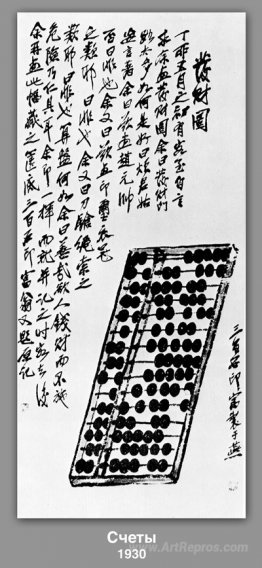 發財圖
丁卯五月之初有客至自言
求余畫發財圖余曰發財門
路太多如何是好曰煩君姑
妄言著余曰欲畫趙元帥
否曰非也余又曰欲畫印璽衣冠
之類耶曰非也余又曰刀槍繩索之
類耶曰非也算盤何如余曰善哉欲人錢財而不施
危險乃仁具耳余即一揮而就並記之時客去後
余再畫此幅藏之篋底三百石印富翁又題原記
三百石印富製于燕
Счеты
1930
www.ArtRepros.com